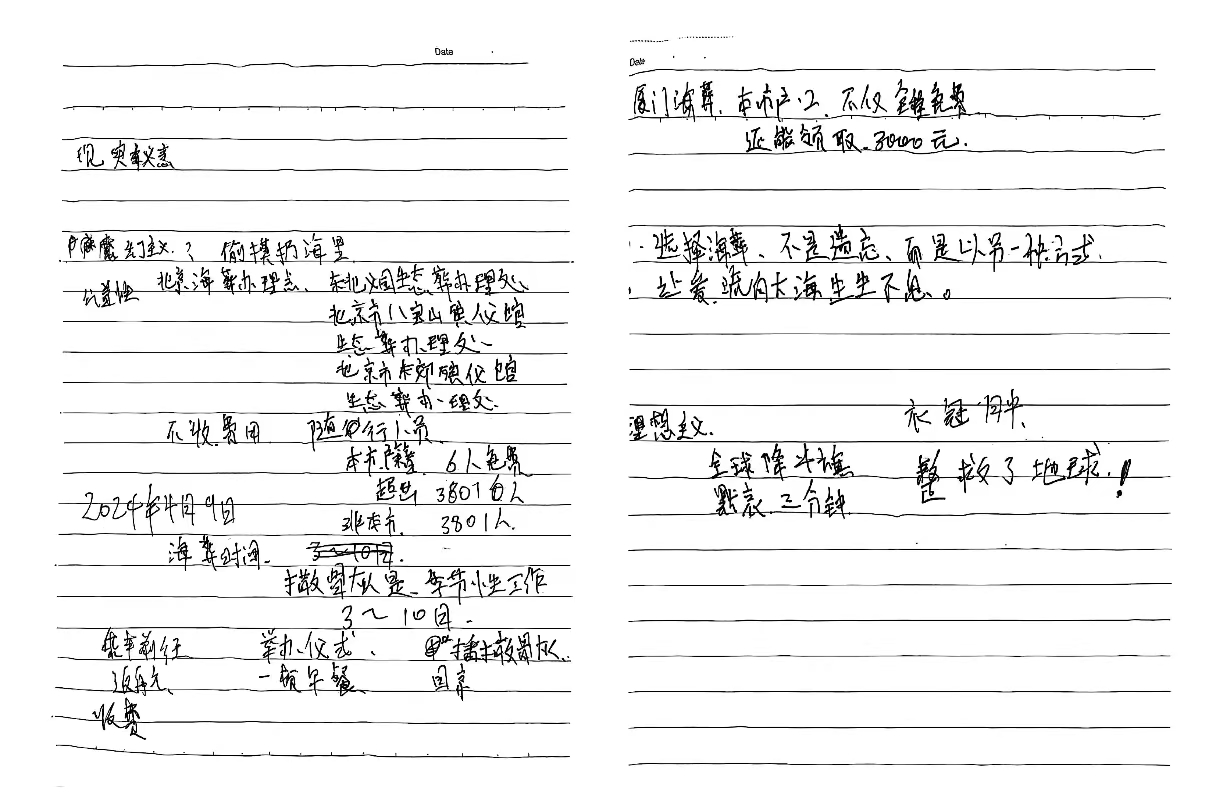 Date
现实主义
魔幻主义？ 偷摸扔海里
公益性 北京海葬办理点、 东北义园生态葬办理处、
北京市八宝山殡仪馆
生态葬办理处、
北京市东郊殡仪馆
生态葬办理处.
不收费用 随行人员
本市户籍 6人免费
超出 3801人
2024年4月9日 非本市 3801人.
海葬时间. 3～10月.
播撒骨灰是季节性工作
3～10月.
乘车前往 举办仪式、 播撒骨灰.
一顿午餐 回京
收费
Date
厦门海葬. 本市户口 不仅全程免费
还能领取 3000元.
选择海葬、不是遗忘、而是以另一种方式.
让爱流向大海生生不息。
理想主义. 衣冠冢
全球降半旗 拯救了地球！
默哀三分钟